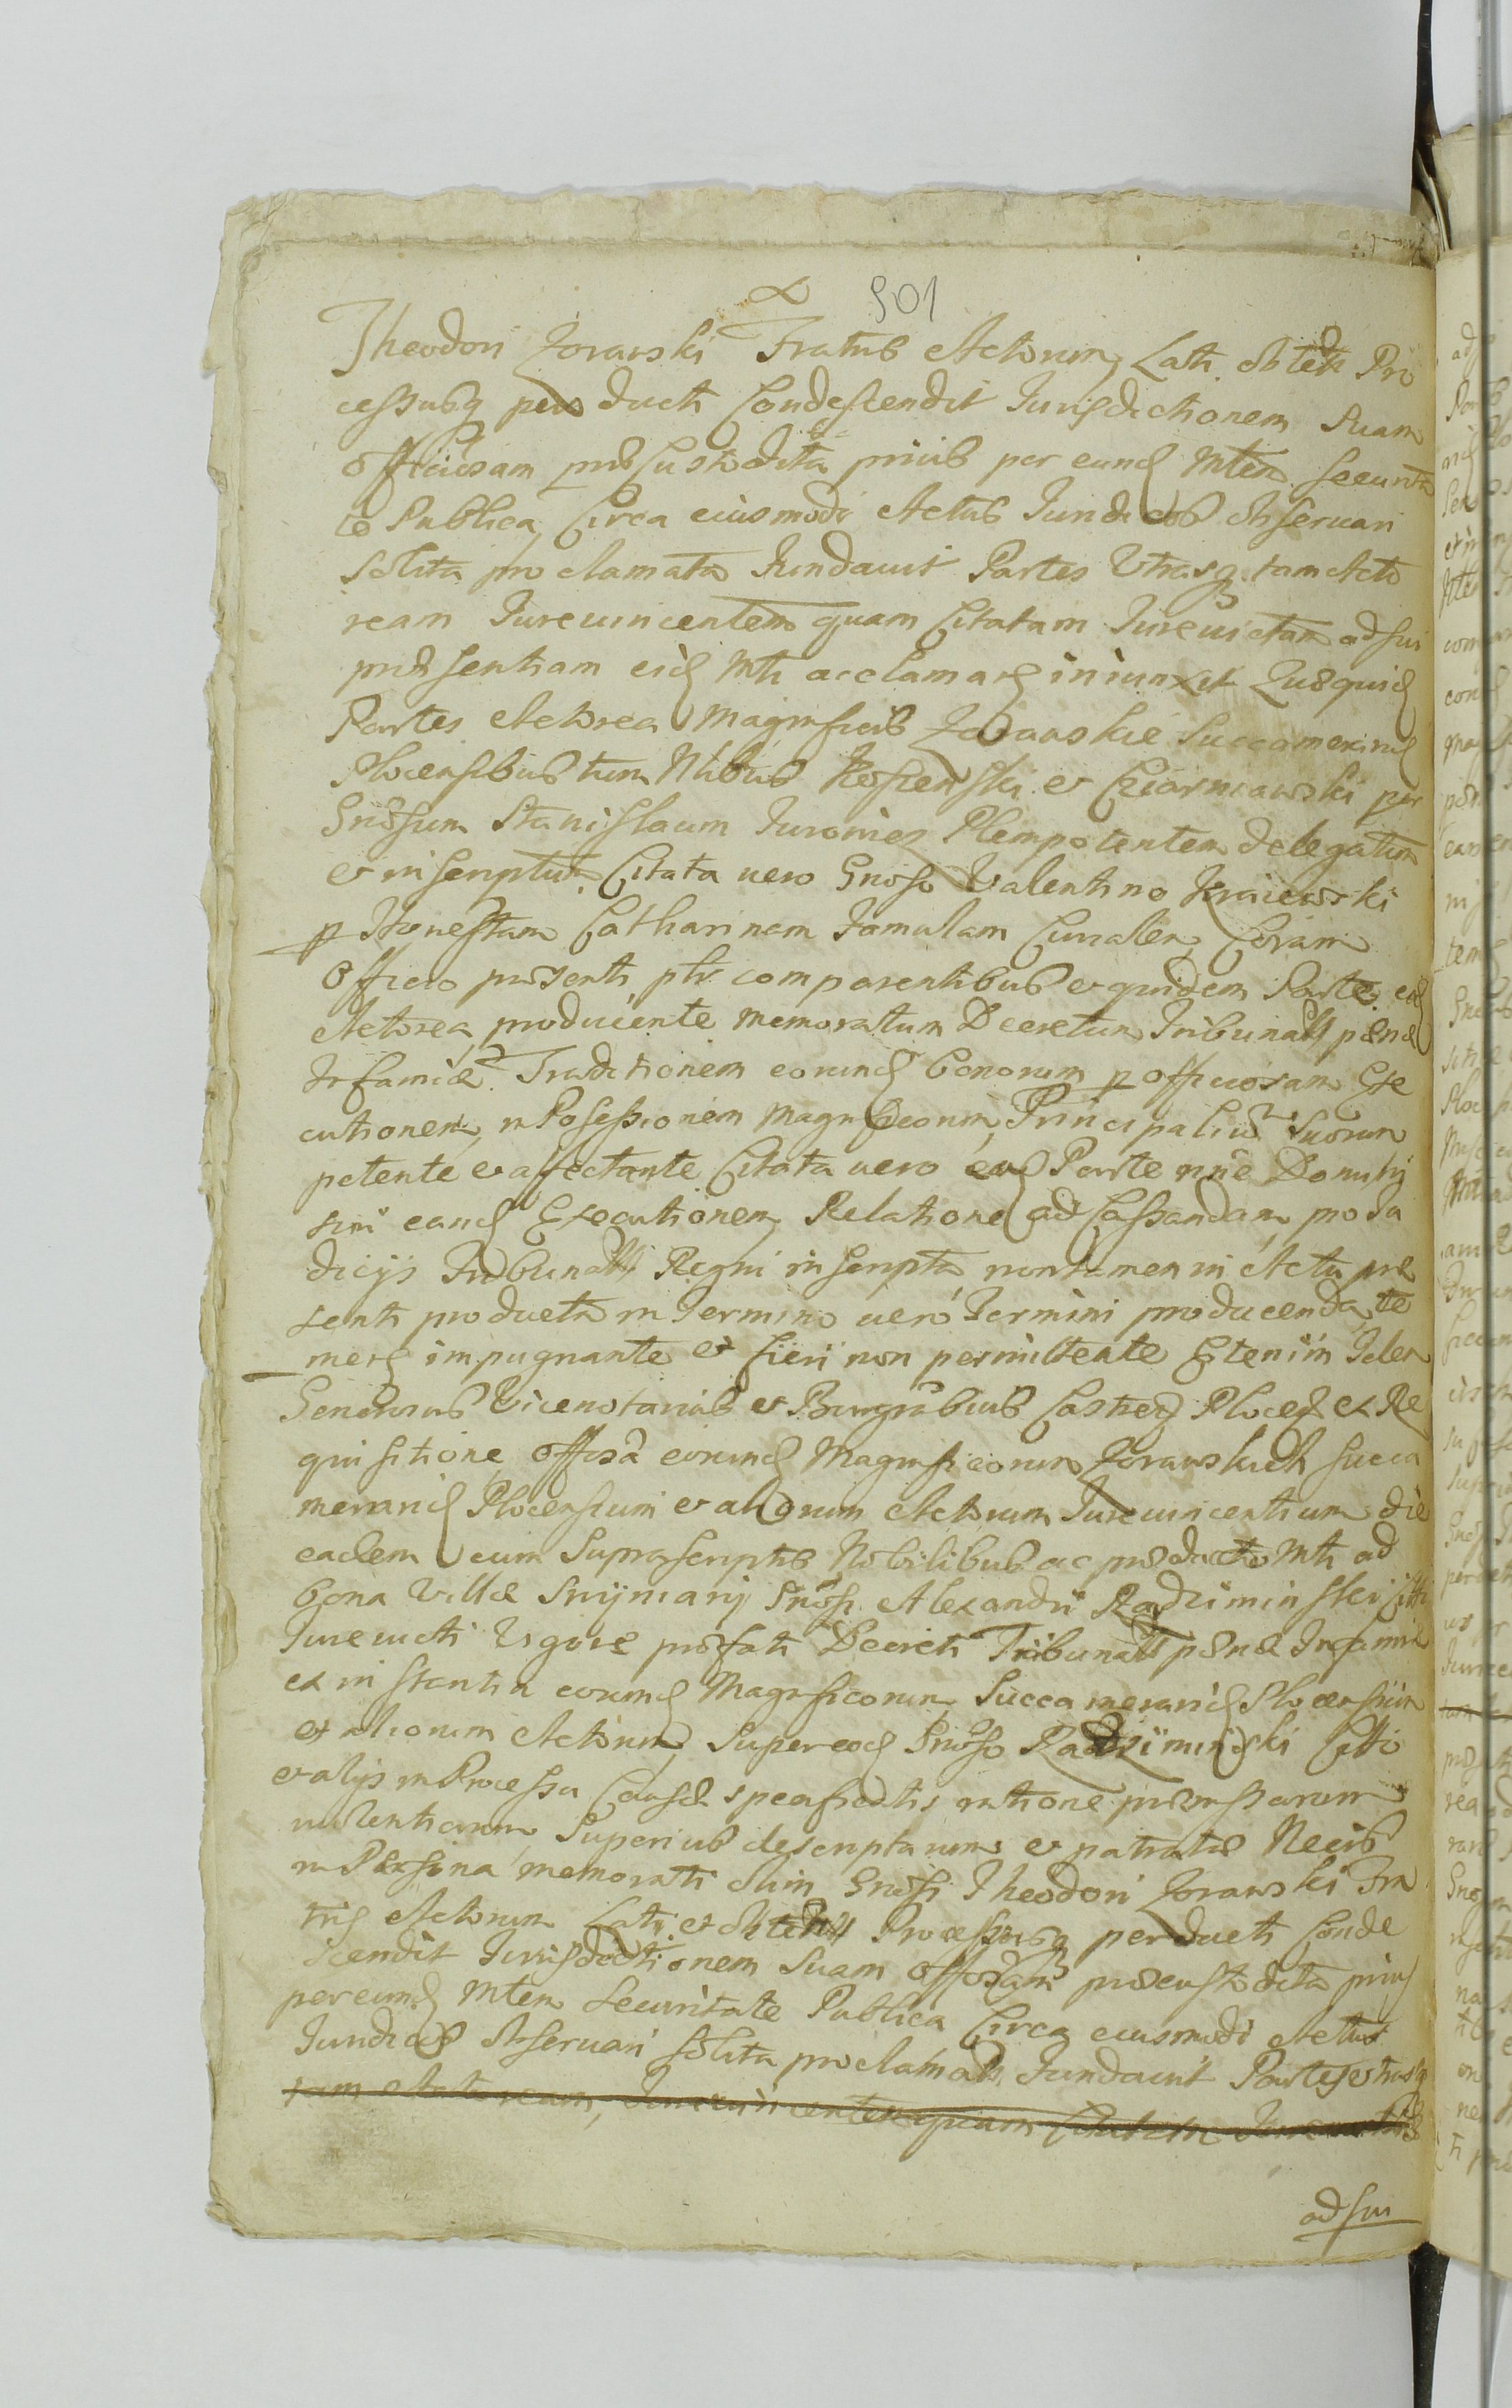 501
Theodori Zorawski Fratris Actorum Lati obten Pro
cessusq perducti Condescendit Jurisdictionem Suam
Officiosam præCustodita prius per eund Mtem Securita
te Publica, Circa eiusmodi Actus Juridicos observari
solita proclamata Fundavit Partes Utrasq tam Acto
ream Jurevincentem quam Citatam Jurevictam ad sui
præsentiam eid Mti acclamare iniunxit Quæquid
Partes Actorea Magnificis Zorawskie Succamerarid
Plocensibus tum Nlibus Koscienski et Czarniawski per
Gnosum Stanislaum Plenipotentem delegatum
et inscriptum Citata vero Gnoso Valentino Kraiewski
p Honestam Catharinam Famulam Curialem Coram
Officio præsenti pltr comparentibus et quidem Parte ead
Actorea producente memoratum Decretum Tribunalis pænæ
Infamiæ Traditionem eorund bonorum p officiosam Exe
cutionem, in Possessionem Magnificorum Principaliu Suorum
petente et affectante Citata vero ead Parte
eand Executionem Relatione ad Cassandam pro Ju
dicijs Tribunalis Regni inscripta non tamen in Actu præ
senti producta in Termino vero Termini producenda te
mere impugnante et fieri non permittente Etenim Idem
Generosus Vicenotarius et Burgrabius Castren Plocen ex Re
quisitione offosa eorund Magnificorum Zorawskich Succa
merarid Plocensium et aliorum Actorum Jurevincentium die
eadem cum Suprascriptis Nobilibus ac prædicto Mti ad
bona Villæ Gnosi Alexandri Radziminski Citti
Jurevicti Vigore præfati Decreti Tribunalis pænæ Infamiæ
ex instantia eorund Magnificorum Succamerarid Plocensium
et aliorum Actorum Super eod Gnoso Radziminski Citto
et alijs in Processu Causæ specificatis ratione præmissarum
violentiarum Superius descriptarum et patratæ Necis
in Persona memorati olim Gnosi Theodori Zorawski Fra
tris Actorum Lati et obtenti Processusq perducti Conde
scendit Jurisdictionem Suam offosam præcustodita prius
per eund Mtem Securitate Publica Circa eiusmodi Actus
Juridicos observari solita proclamata Fundavit Partes utrasq
tam Actoream, Jurevincentem quam Citatam
ad sui